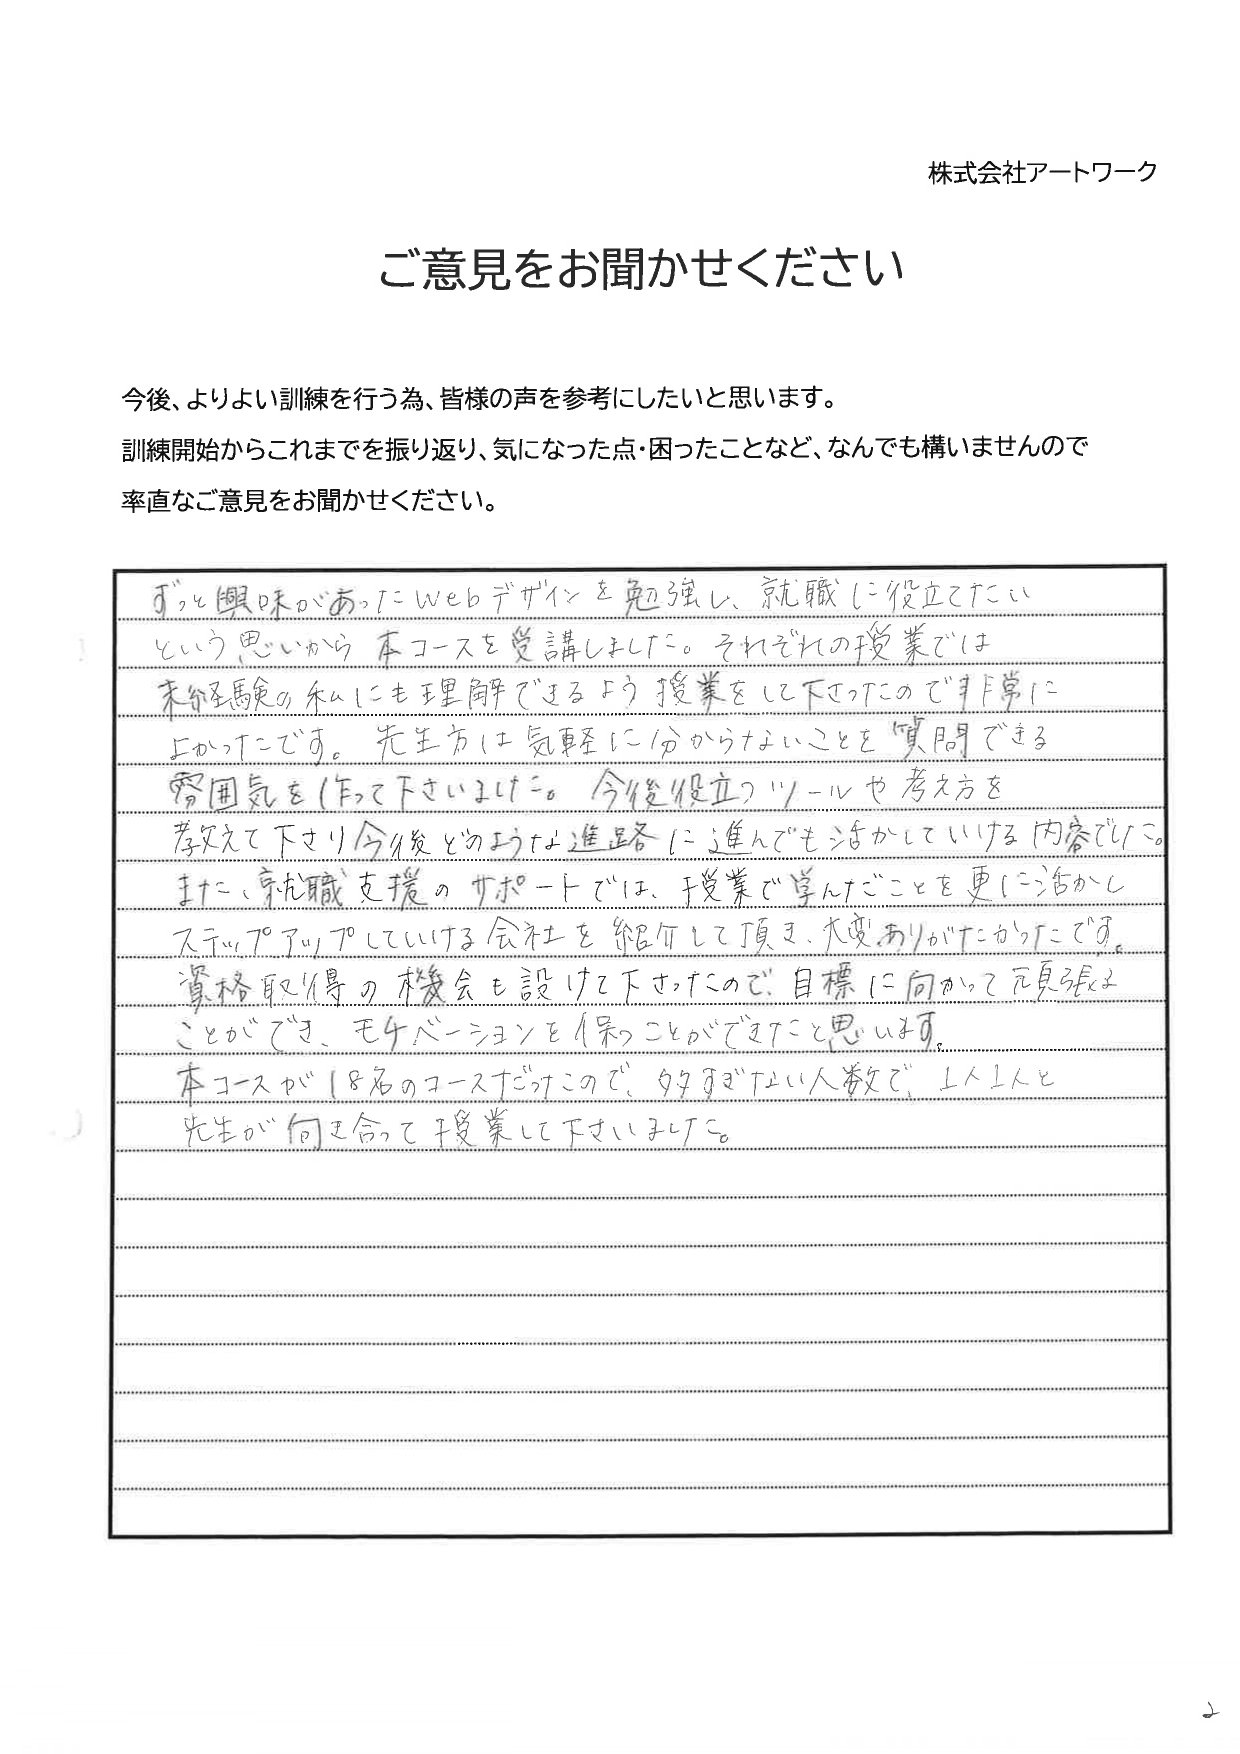 株式会社アートワーク
ご意見をお聞かせください
今後、よりよい訓練を行う為、皆様の声を参考にしたいと思います。
訓練開始からこれまでを振り返り、気になった点・困ったことなど、なんでも構いませんので
率直なご意見をお聞かせください。
ずっと興味があったWebデザインを勉強し、就職に役立てたい
という思いから本コースを受講しました。それぞれの授業では
未経験の私にも理解できるよう授業をして下さったので非常に
よかったです。先生方は気軽に分からないことを質問できる
雰囲気を作って下さいました。今後役立つツールや考え方を
教えて下さり今後どのような進路に進んでも活かしていける内容でした。
また、就職支援のサポートでは、授業で学んだことを更に活かし
ステップアップしていける会社を紹介して頂き、大変ありがたかったです。
資格取得の機会も設けて下さったので、目標に向かって頑張る
ことができ、モチベーションを保つことができたと思います。
本コースが18名のコースだったので、多すぎない人数で、1人1人と
先生が向き合って授業して下さいました。
2